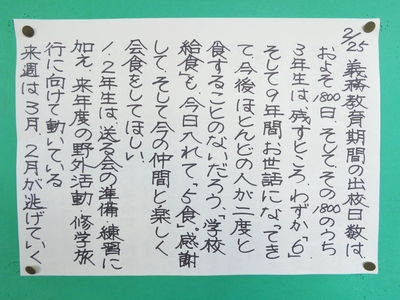 2/25 義務教育期間の出校日数は、
およそ1800日。そして、その1800のうち
3年生は、残すところ、わずか「6」
そして9年間、お世話になってき
て、今後ほとんどの人が二度と
食することのないだろう、「学校
給食」も、今日入れて、「5食」。感謝
して、そして今の仲間と楽しく
会食をしてほしい。
1、2年生は、送る会の準備・練習に
加え、来年度の野外活動、修学旅
行に向けて動いている
来週は3月、2月が逃げていく